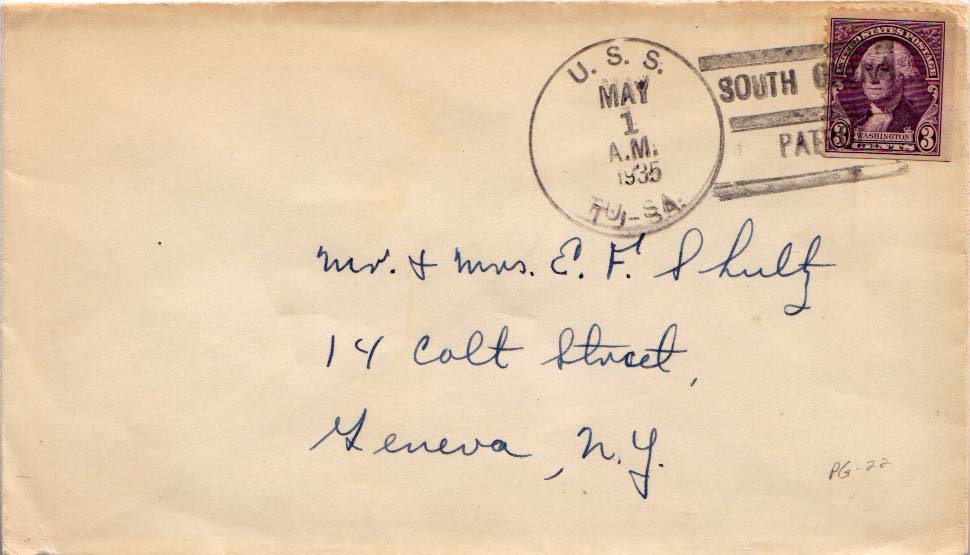 U. S. S.
MAY
1
A.M.
1935
TULSA.
SOUTH
UNITED STATES POSTAGE
3 WASHINGTON 3
CENTS
Mr. & Mrs. E. F. Shultz
14 Colt Street,
Geneva, N.Y.
PG-22